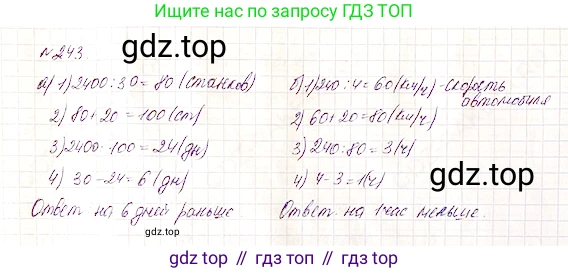 Ищите нас по запросу ГДЗ ТОП
gdz.top
№243.
а) 1) 2400 : 30 = 80 (станков)
2) 80 + 20 = 100 (ст)
3) 2400 : 100 = 24 (дн)
4) 30 - 24 = 6 (дн)
Ответ: на 6 дней раньше.
б) 1) 240 : 4 = 60 (км/ч) - скорость
автомобиля
2) 60 + 20 = 80 (км/ч)
3) 240 : 80 = 3 (ч)
4) 4 - 3 = 1 (ч)
Ответ: на 1 час меньше.
gdz.top
gdz.top
gdz.top // гдз топ // гдз.топ